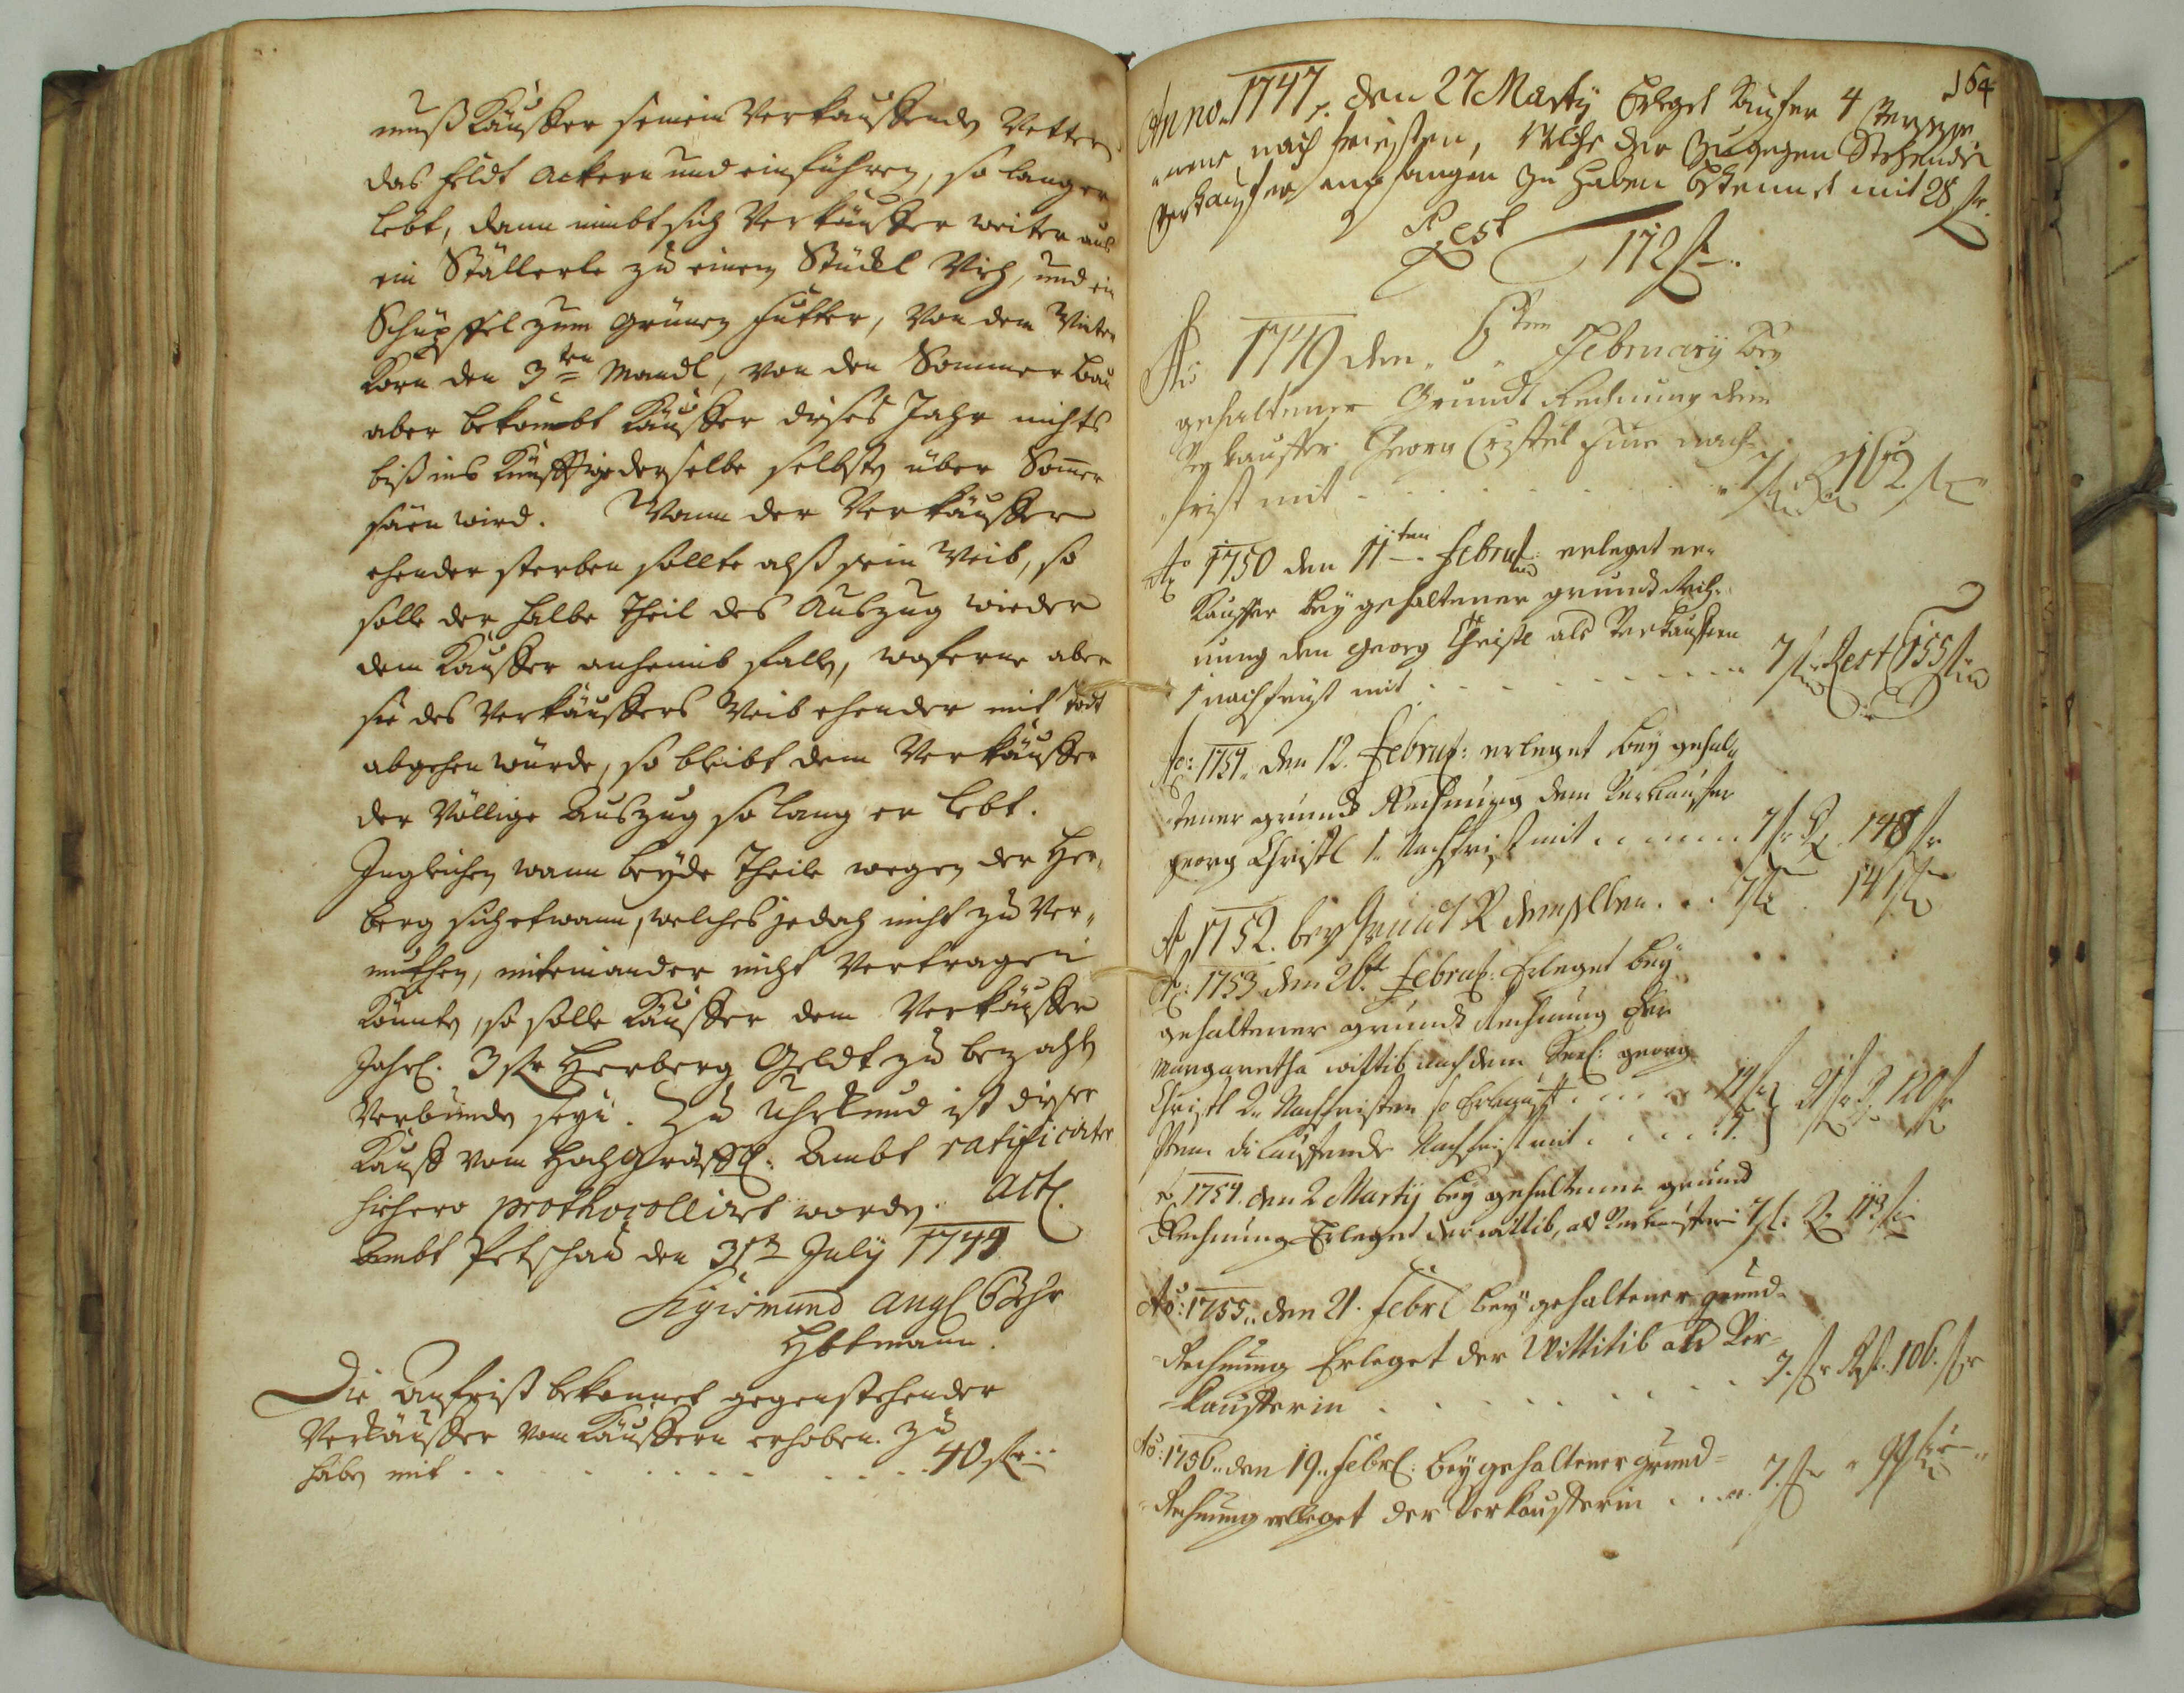 muß Käuffer seinem Verkauffenden Vetter
das Feldt Ackern und einführen, so lang er
lebt, dann nimbt sich Verkäuffer weiter aus
ein Ställerle zu einem Stückl Vieh, und ein
Schüpffel zum grünen Futter, Von dem Winter
Korn den 3ten Mandl, von den Sommer bau
aber bekombt Käuffer dieses Jahr nichts
biß ins Künfftige derselbe selbsten über Somer
säen wird. Wann der Verkäuffer
ehender sterben sollte alß sein Weib, so
solle der halbe Theil des Außzug wieder
dem Käuffer anheimb fallen, woferne aber
sie des Verkäuffers Weib ehender mit todt
abgehen würde, so bleibt dem Verkäuffer
der Völlige Außzug so lang er lebt.
Ingleichen wann beyde Theile wegen der Her-
berg sich etwann, welches jedoch nicht zu Ver-
muthen, miteinander nicht Vertragen
Könnten, so solle Käuffer dem Verkäuffer
Jährl. 3 fl Herberg Geldt zu bezahlen
Verbunden seyn. Zu Uhrkund ist dieser
Kauff vom Hochgräffl. Ambt ratificirter
hiehero prothocollirt worden. Act.
Ambt Petschau den 31ten July 1744
Sigismund
Hbtmann.
Die Anfrist bekennet gegenstehender
Verkäuffer vom Käuffern erhoben zu
haben mit . . . . . . . . . . 40 fl
164
Anno 1747. den 27 Marty Erlegt Kaufer 4
nach friesten, Welche der Zugegen Stehende
Verkaufer empfangen zu haben bekennet mit 28 fl.
Rest 172 fl.
Ao 1749 den 6ten February bey
gehaltener Grundt Rechnung dem
Verkauffer Georg Christl eine nach
frist mit . . . . . . 7 fl R 162 fl
Ao 1750 den 11ten Febru: erleget er-
Kauffer bey gehaltener grund Rech-
nung den georg Christl als Verkauffern
1 nachfrist mit . . . . . . 7 fl Rest 155 fl
Ao: 1751. den 12. Febru: erleget bey gehal-
tener grund Rechnung dem Verkauffer
georg Christl 1 Nachfrist mit . . . . 7 fl R 148 fl
Ao 1752. bey Grundt R demselben . . . 7 fl . 141 fl
Ao: 1753 den 26t Febru: Erleget bey
gehaltener grundt Rechnung der
Margaretha wittib nach dem Seel: georg
Christl 2 Nachfristen so . . . . 14 fl
Item die lauffende Nachfrist mit . . . . 7. 21 fl R 120 fl
Ao 1754. den 2 Martij bey gehaltener grund
Rechnung Erleget der wittib, als Verkaufferin 7 fl: R: 113 fl
Ao: 1755. den 21. Febrl bey gehaltener grund-
Rechnung Erleget der Wittitib als Ver-
kaufferin . . . . . . . . 7. fl Rst. 106. fl
Ao: 1756. den 19. Febrl: bey gehaltener grund=
Rechnung erleget der Verkaufferin . . . 7. fl 99 fl